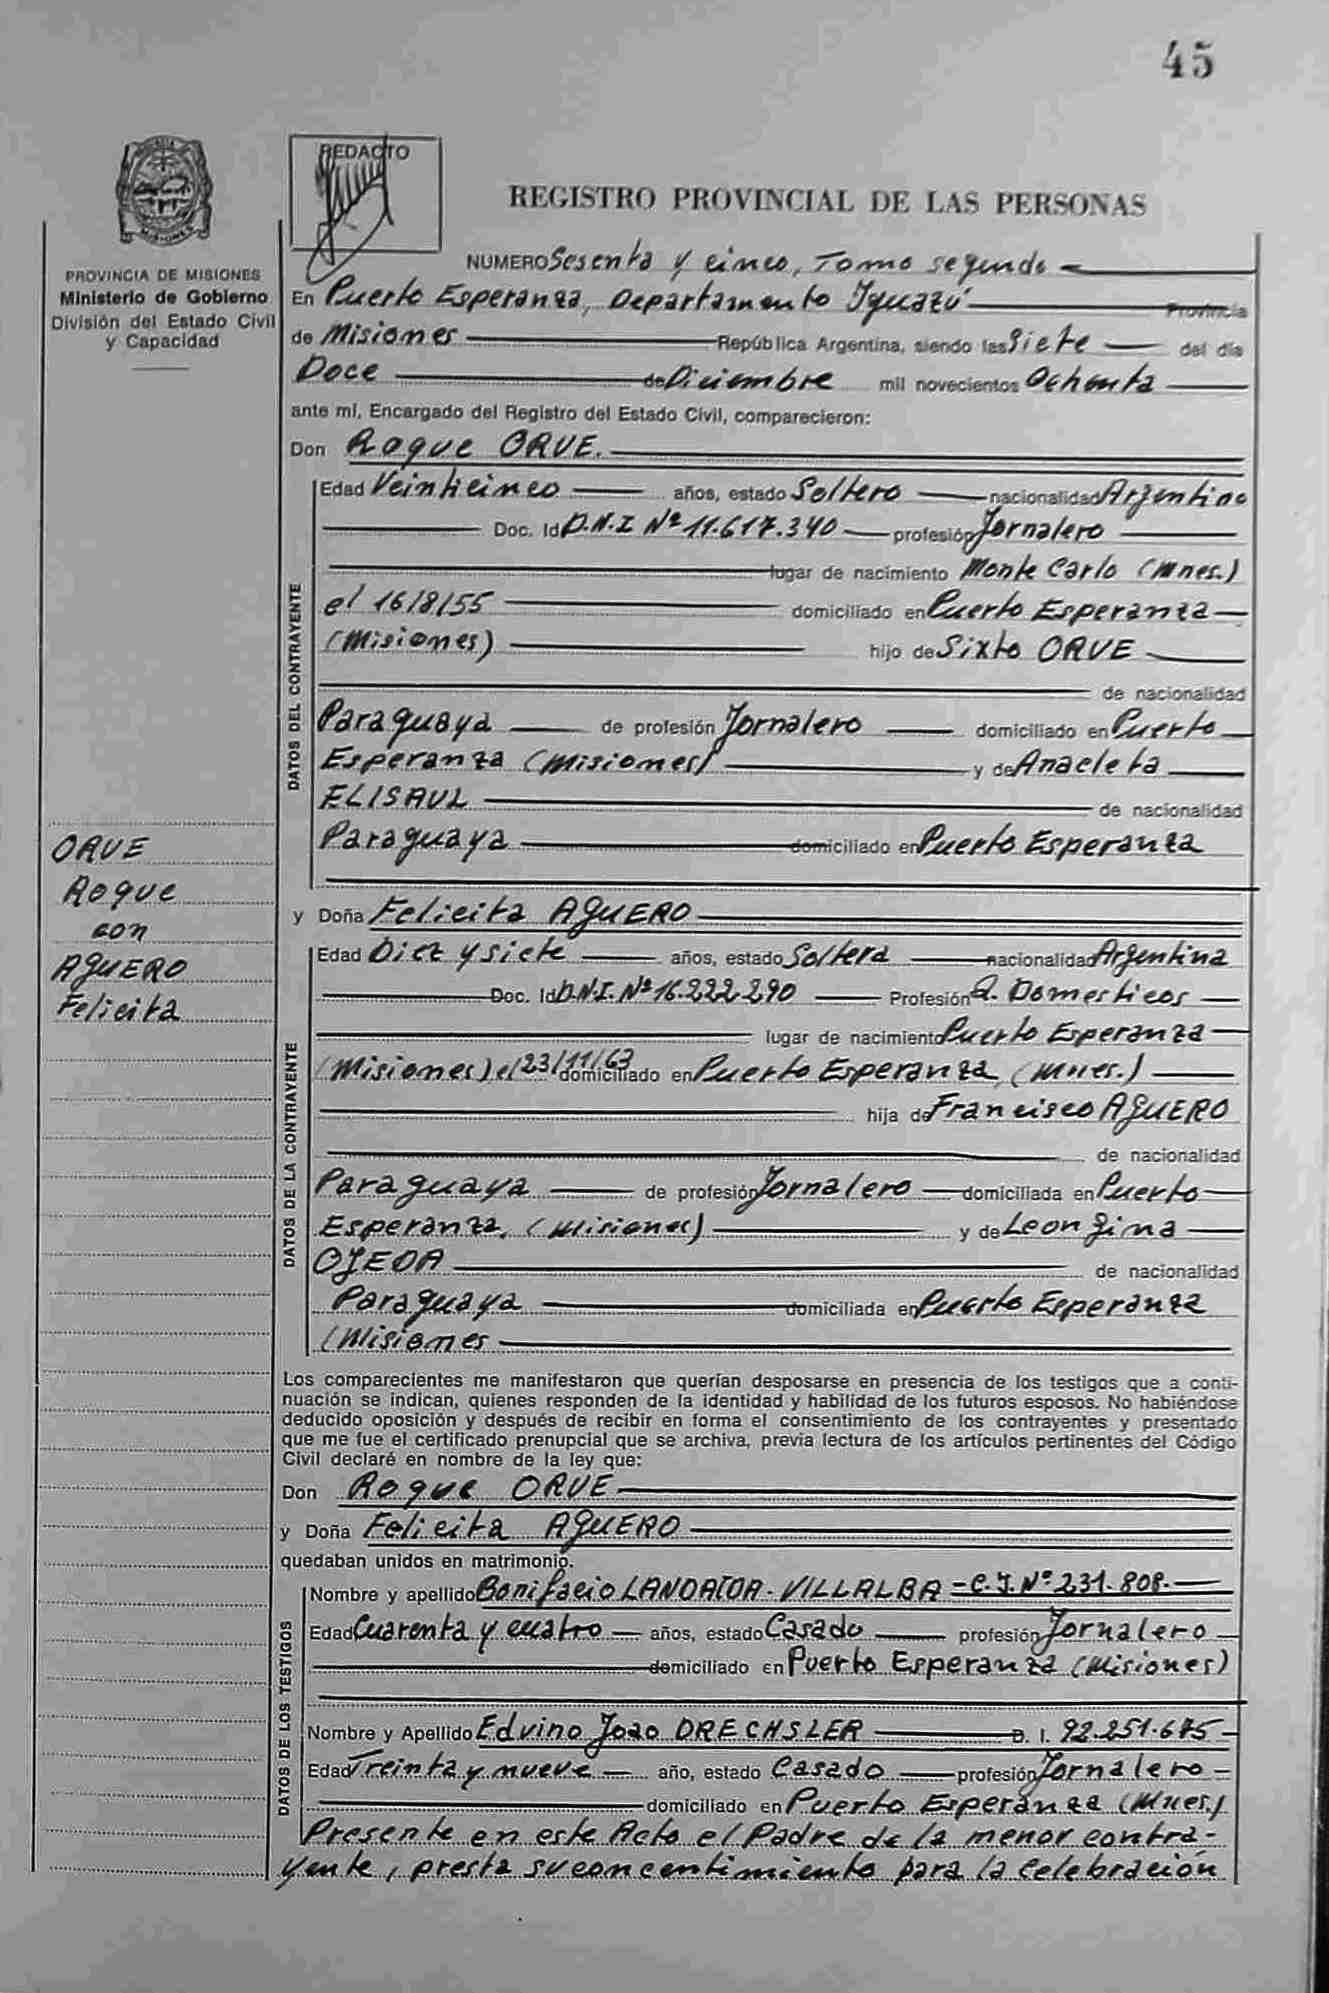 45
REDACTO
REGISTRO PROVINCIAL DE LAS PERSONAS
MISIONES
PROVINCIA DE MISIONES
Ministerio de Gobierno
División del Estado Civil
y Capacidad
NUMERO Sesenta y cinco, Tomo segundo
En Puerto Esperanza, Departamento Iguazú Provincia
de Misiones República Argentina, siendo las Siete del día
Doce de Diciembre mil novecientos Ochenta
ante mí, Encargado del Registro del Estado Civil, comparecieron:
Don Roque ORUE.
DATOS DEL CONTRAYENTE
Edad Veinticinco años, estado Soltero nacionalidad Argentino
Doc. Id D.N.I Nº 11.617.340 profesión Jornalero
lugar de nacimiento Monte Carlo (Mnes.)
el 16/8/55 domiciliado en Puerto Esperanza
(Misiones) hijo de Sixto ORUE
de nacionalidad
Paraguaya de profesión Jornalero domiciliado en Puerto
Esperanza (Misiones) y de Anacleta
ELISAUL de nacionalidad
Paraguaya domiciliado en Puerto Esperanza
ORUE
Roque
con
AGUERO
Felicita
y Doña Felicita AGUERO
DATOS DE LA CONTRAYENTE
Edad Diez y siete años, estado Soltera nacionalidad Argentina
Doc. Id D.N.I. Nº 16.222.290 Profesión Q. Domesticos
lugar de nacimiento Puerto Esperanza
(Misiones) el 23/11/63 domiciliado en Puerto Esperanza, (Mnes.)
hija de Francisco AGUERO
de nacionalidad
Paraguaya de profesión Jornalero domiciliada en Puerto
Esperanza, (Misiones) y de Leongina
OJEDA de nacionalidad
Paraguaya domiciliada en Puerto Esperanza
(Misiones
Los comparecientes me manifestaron que querían desposarse en presencia de los testigos que a conti-
nuación se indican, quienes responden de la identidad y habilidad de los futuros esposos. No habiéndose
deducido oposición y después de recibir en forma el consentimiento de los contrayentes y presentado
que me fue el certificado prenupcial que se archiva, previa lectura de los artículos pertinentes del Código
Civil declaré en nombre de la ley que:
Don Roque ORUE
y Doña Felicita AGUERO
quedaban unidos en matrimonio.
DATOS DE LOS TESTIGOS
Nombre y apellido Bonifacio LANDAIDA - VILLALBA - C.I. Nº 231.808.
Edad Cuarenta y cuatro años, estado Casado profesión Jornalero
domiciliado en Puerto Esperanza (Misiones)
Nombre y Apellido Edvino Joao DRECHSLER D. I. 92.251.675
Edad Treinta y nueve año, estado Casado profesión Jornalero
domiciliado en Puerto Esperanza (Mnes.)
Presente en este Acto el Padre de la menor contra-
yente, presta su concentimiento para la Celebración